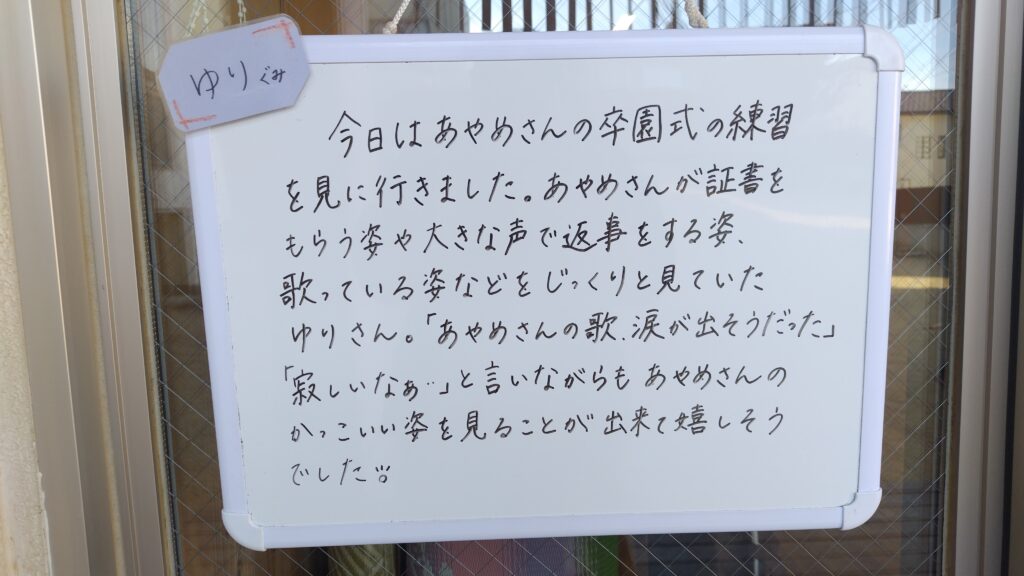 ゆりぐみ
今日はあやめさんの卒園式の練習
を見に行きました。あやめさんが証書を
もらう姿や大きな声で返事をする姿、
歌っている姿などをじっくりと見ていた
ゆりさん。「あやめさんの歌、涙が出そうだった」
「寂しいなぁ…」と言いながらもあやめさんの
かっこいい姿を見ることが出来て嬉しそう
でした